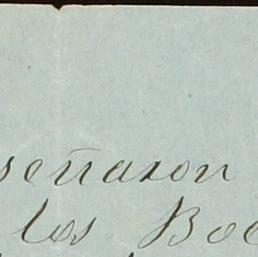 señaron
los Boc